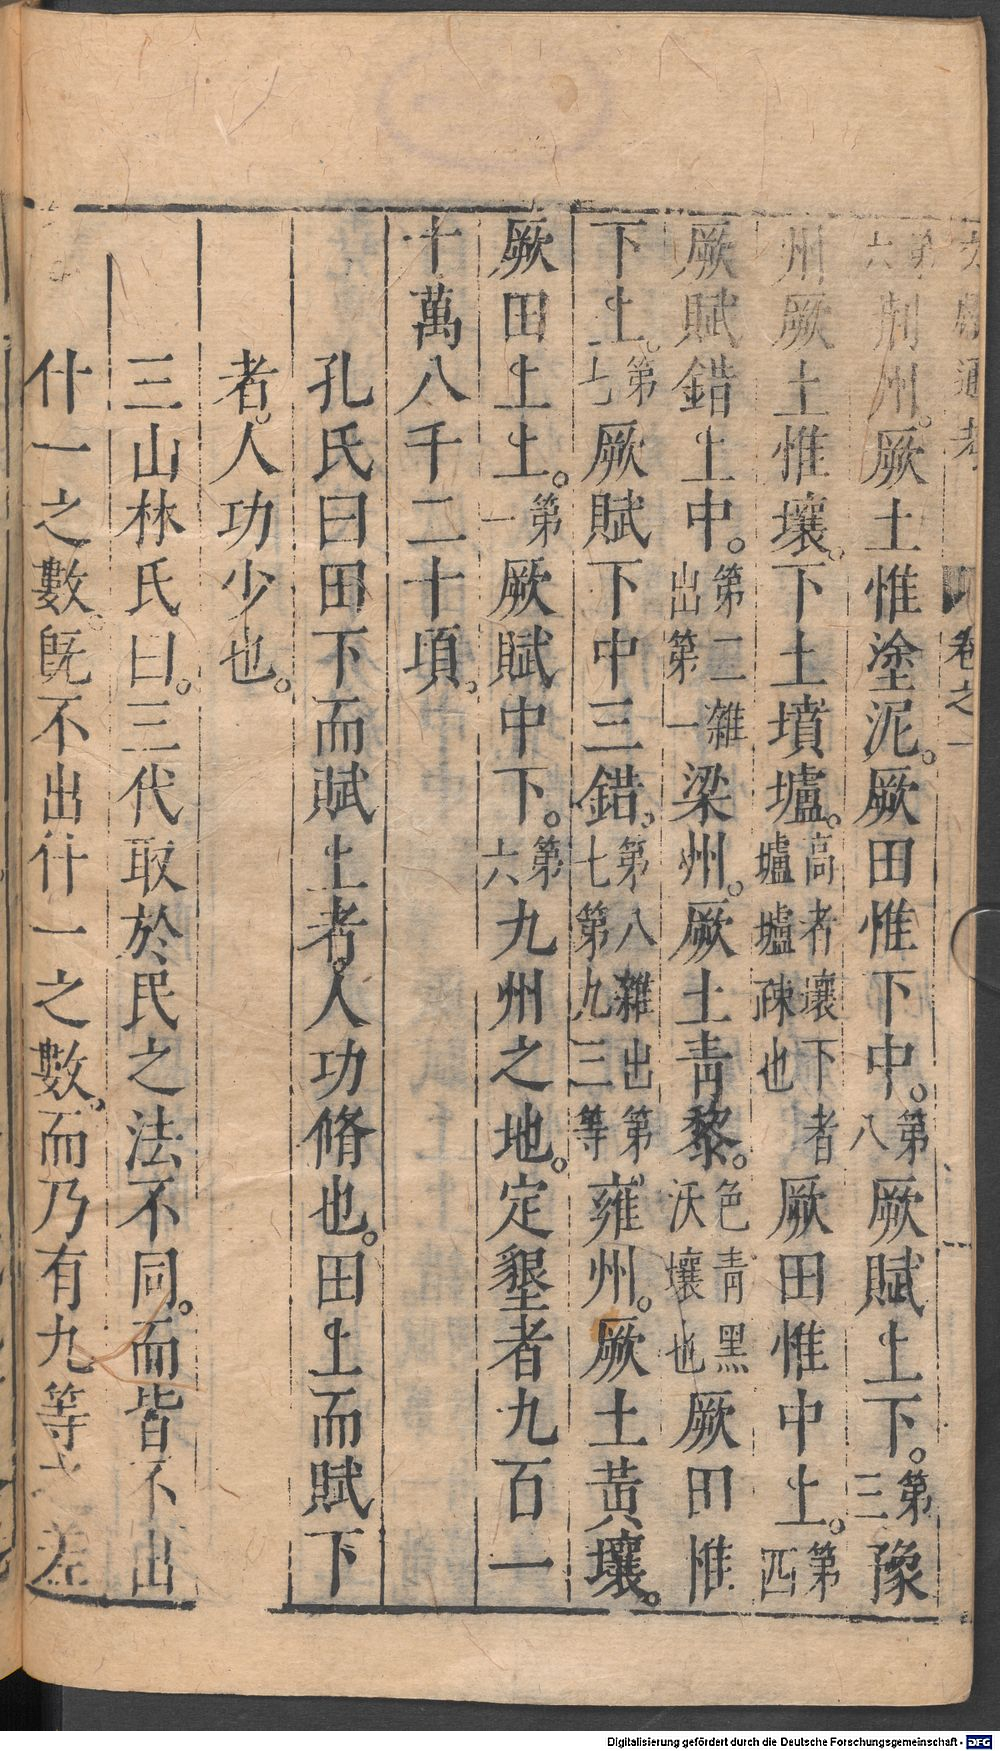 文獻通考 卷之一
第六荆州。厥土惟塗泥。厥田惟下中。第八厥賦上下。第三豫
州厥土惟壤。下土墳壚。高者壤下者壚壚疎也厥田惟中上。第四
厥賦錯上中。第二雜出第一梁州。厥土青黎。色青黑沃壤也厥田惟
下上。第七厥賦下中三錯。第八雜出第七第九三等雍州。厥土黃壤。
厥田上上。第一厥賦中下。第六九州之地。定墾者九百一
十萬八千二十頃。
孔氏曰田下而賦上者。人功脩也。田上而賦下
者。人功少也。
三山林氏曰。三代取於民之法不同。而皆不出
什一之數。旣不出什一之數。而乃有九等之差
Digitalisierung gefördert durch die Deutsche Forschungsgemeinschaft - DFG